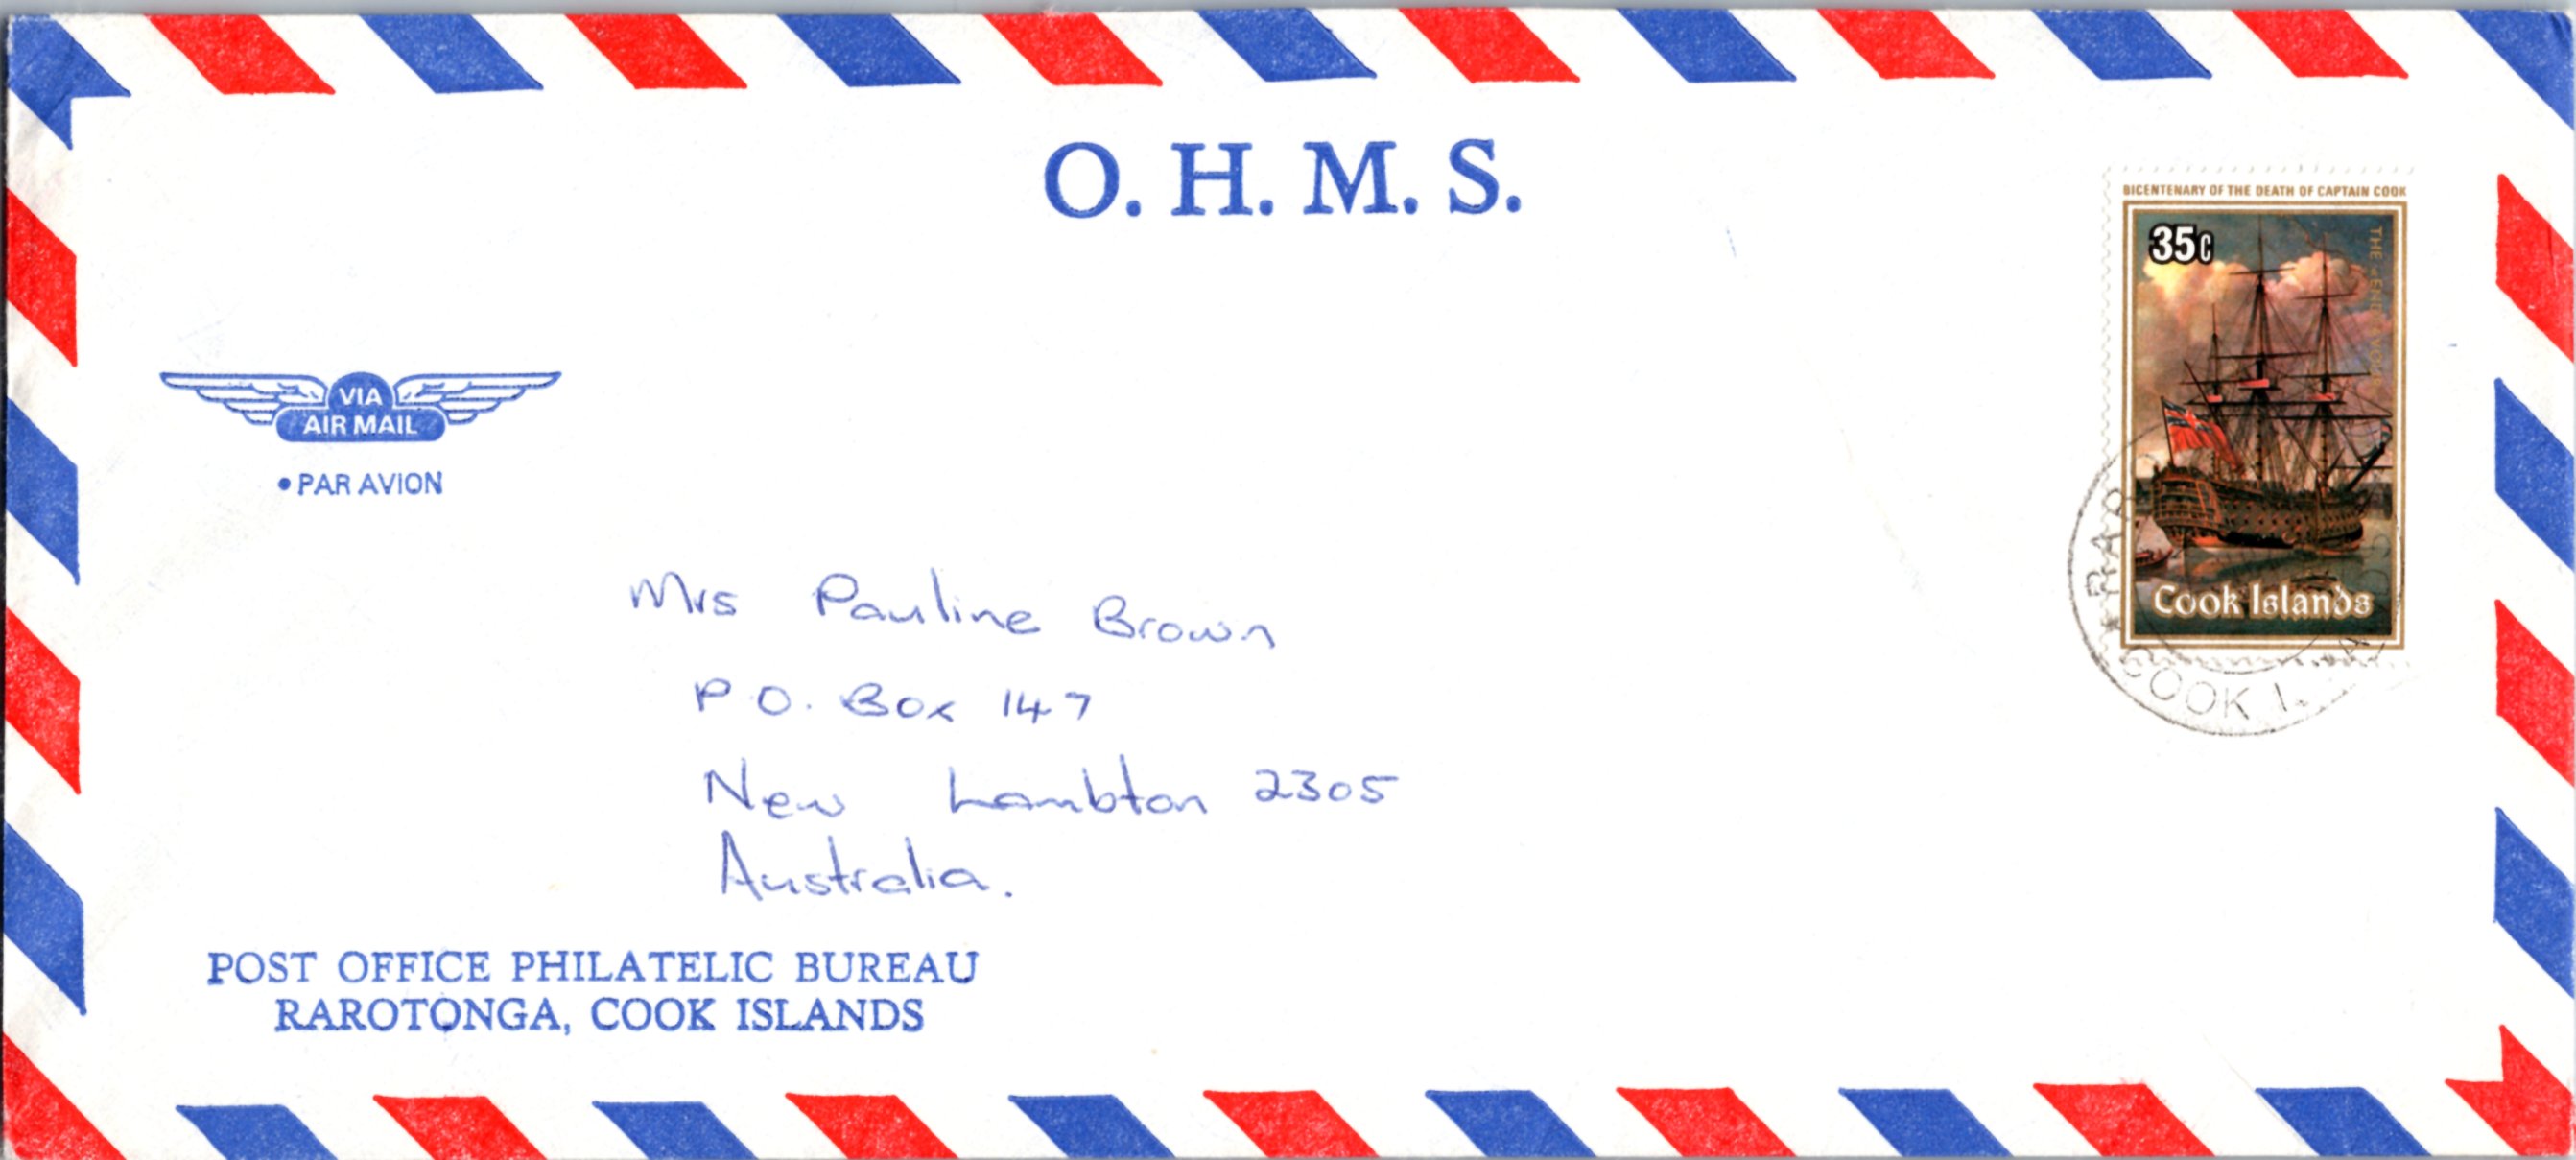 O. H. M. S.
BICENTENARY OF THE DEATH OF CAPTAIN COOK
35c
THE
Cook Islands
COOK I.
VIA
AIR MAIL
• PAR AVION
Mrs Pauline Brown
P.O. Box 147
New Lambton 2305
Australia.
POST OFFICE PHILATELIC BUREAU
RAROTONGA, COOK ISLANDS